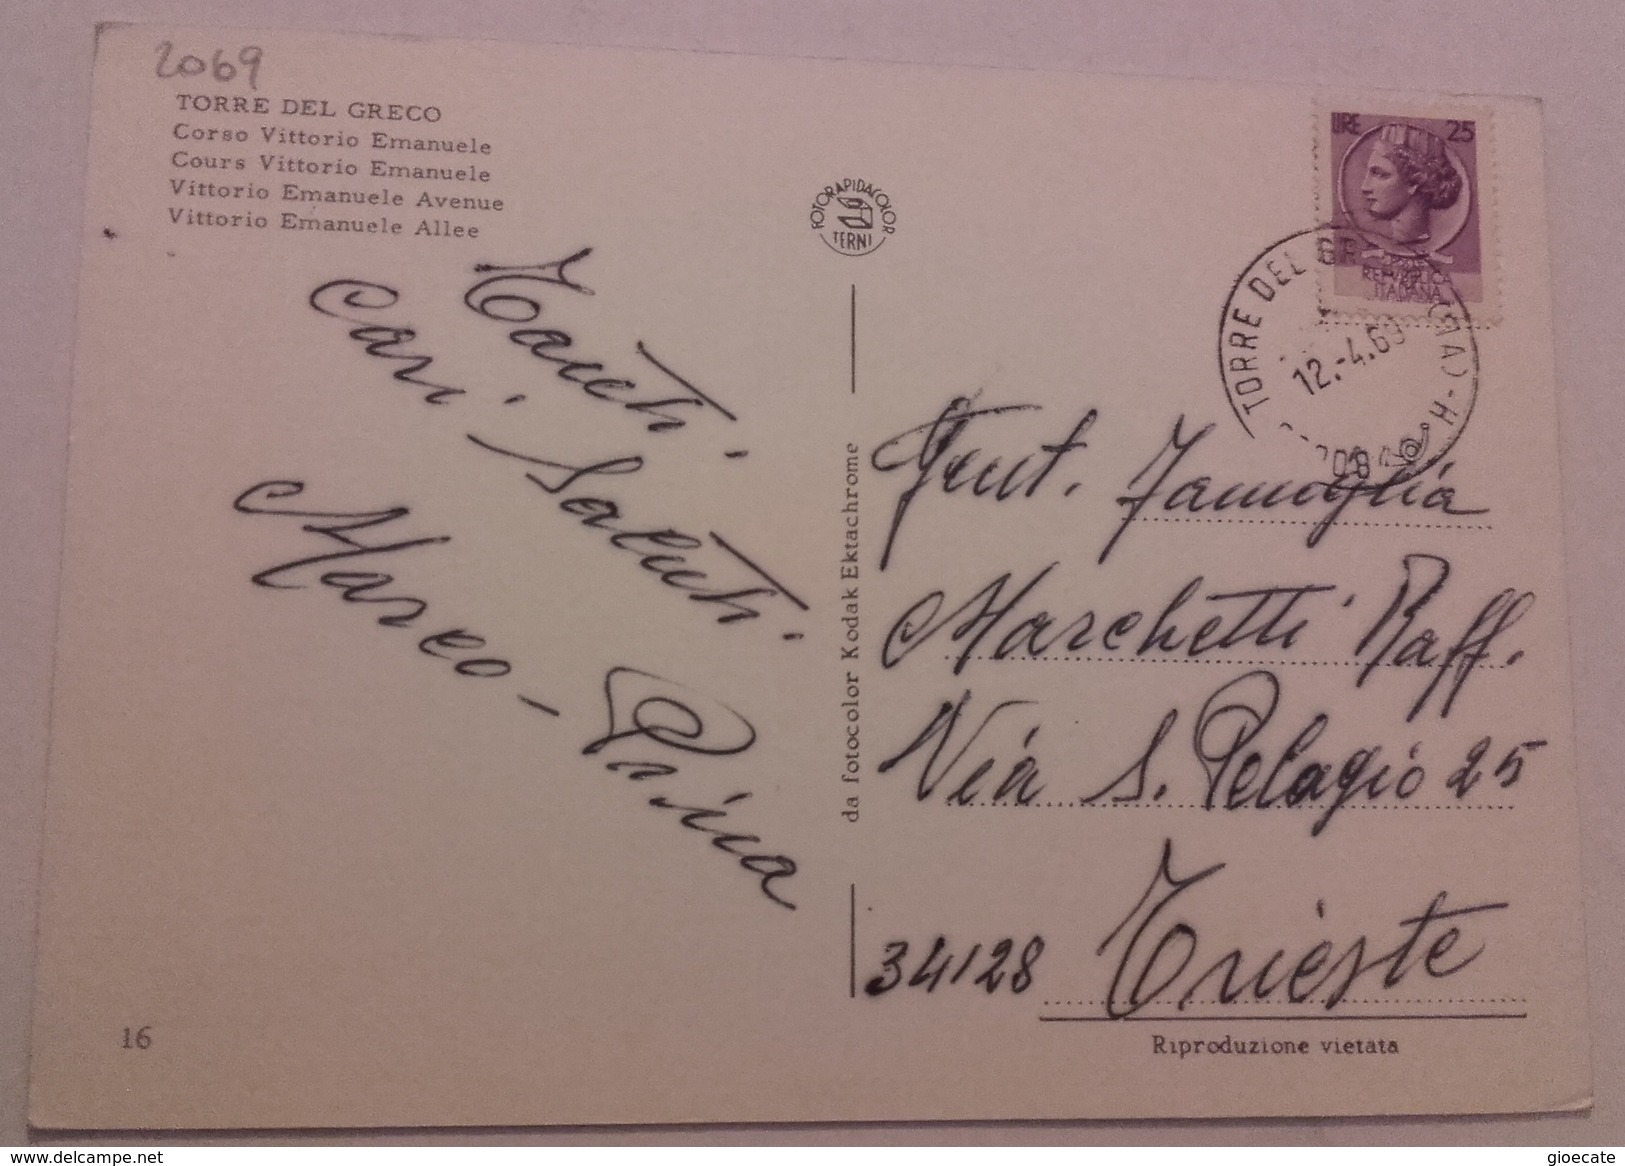 2069
TORRE DEL GRECO
Corso Vittorio Emanuele
Cours Vittorio Emanuele
Vittorio Emanuele Avenue
Vittorio Emanuele Allee
Tanti
Cari Saluti
Marco - Pina
16
FOTORAPIDACOLOR
TERNI
da fotocolor Kodak Ektachrome
LIRE 25
REPVBBLICA
ITALIANA
TORRE DEL GR
12.-4.69
Gent. Famiglia
Marchetti Raff.
Via S. Pelagio 25
34128 Trieste
Riproduzione vietata
www.delcampe.net
gioecate